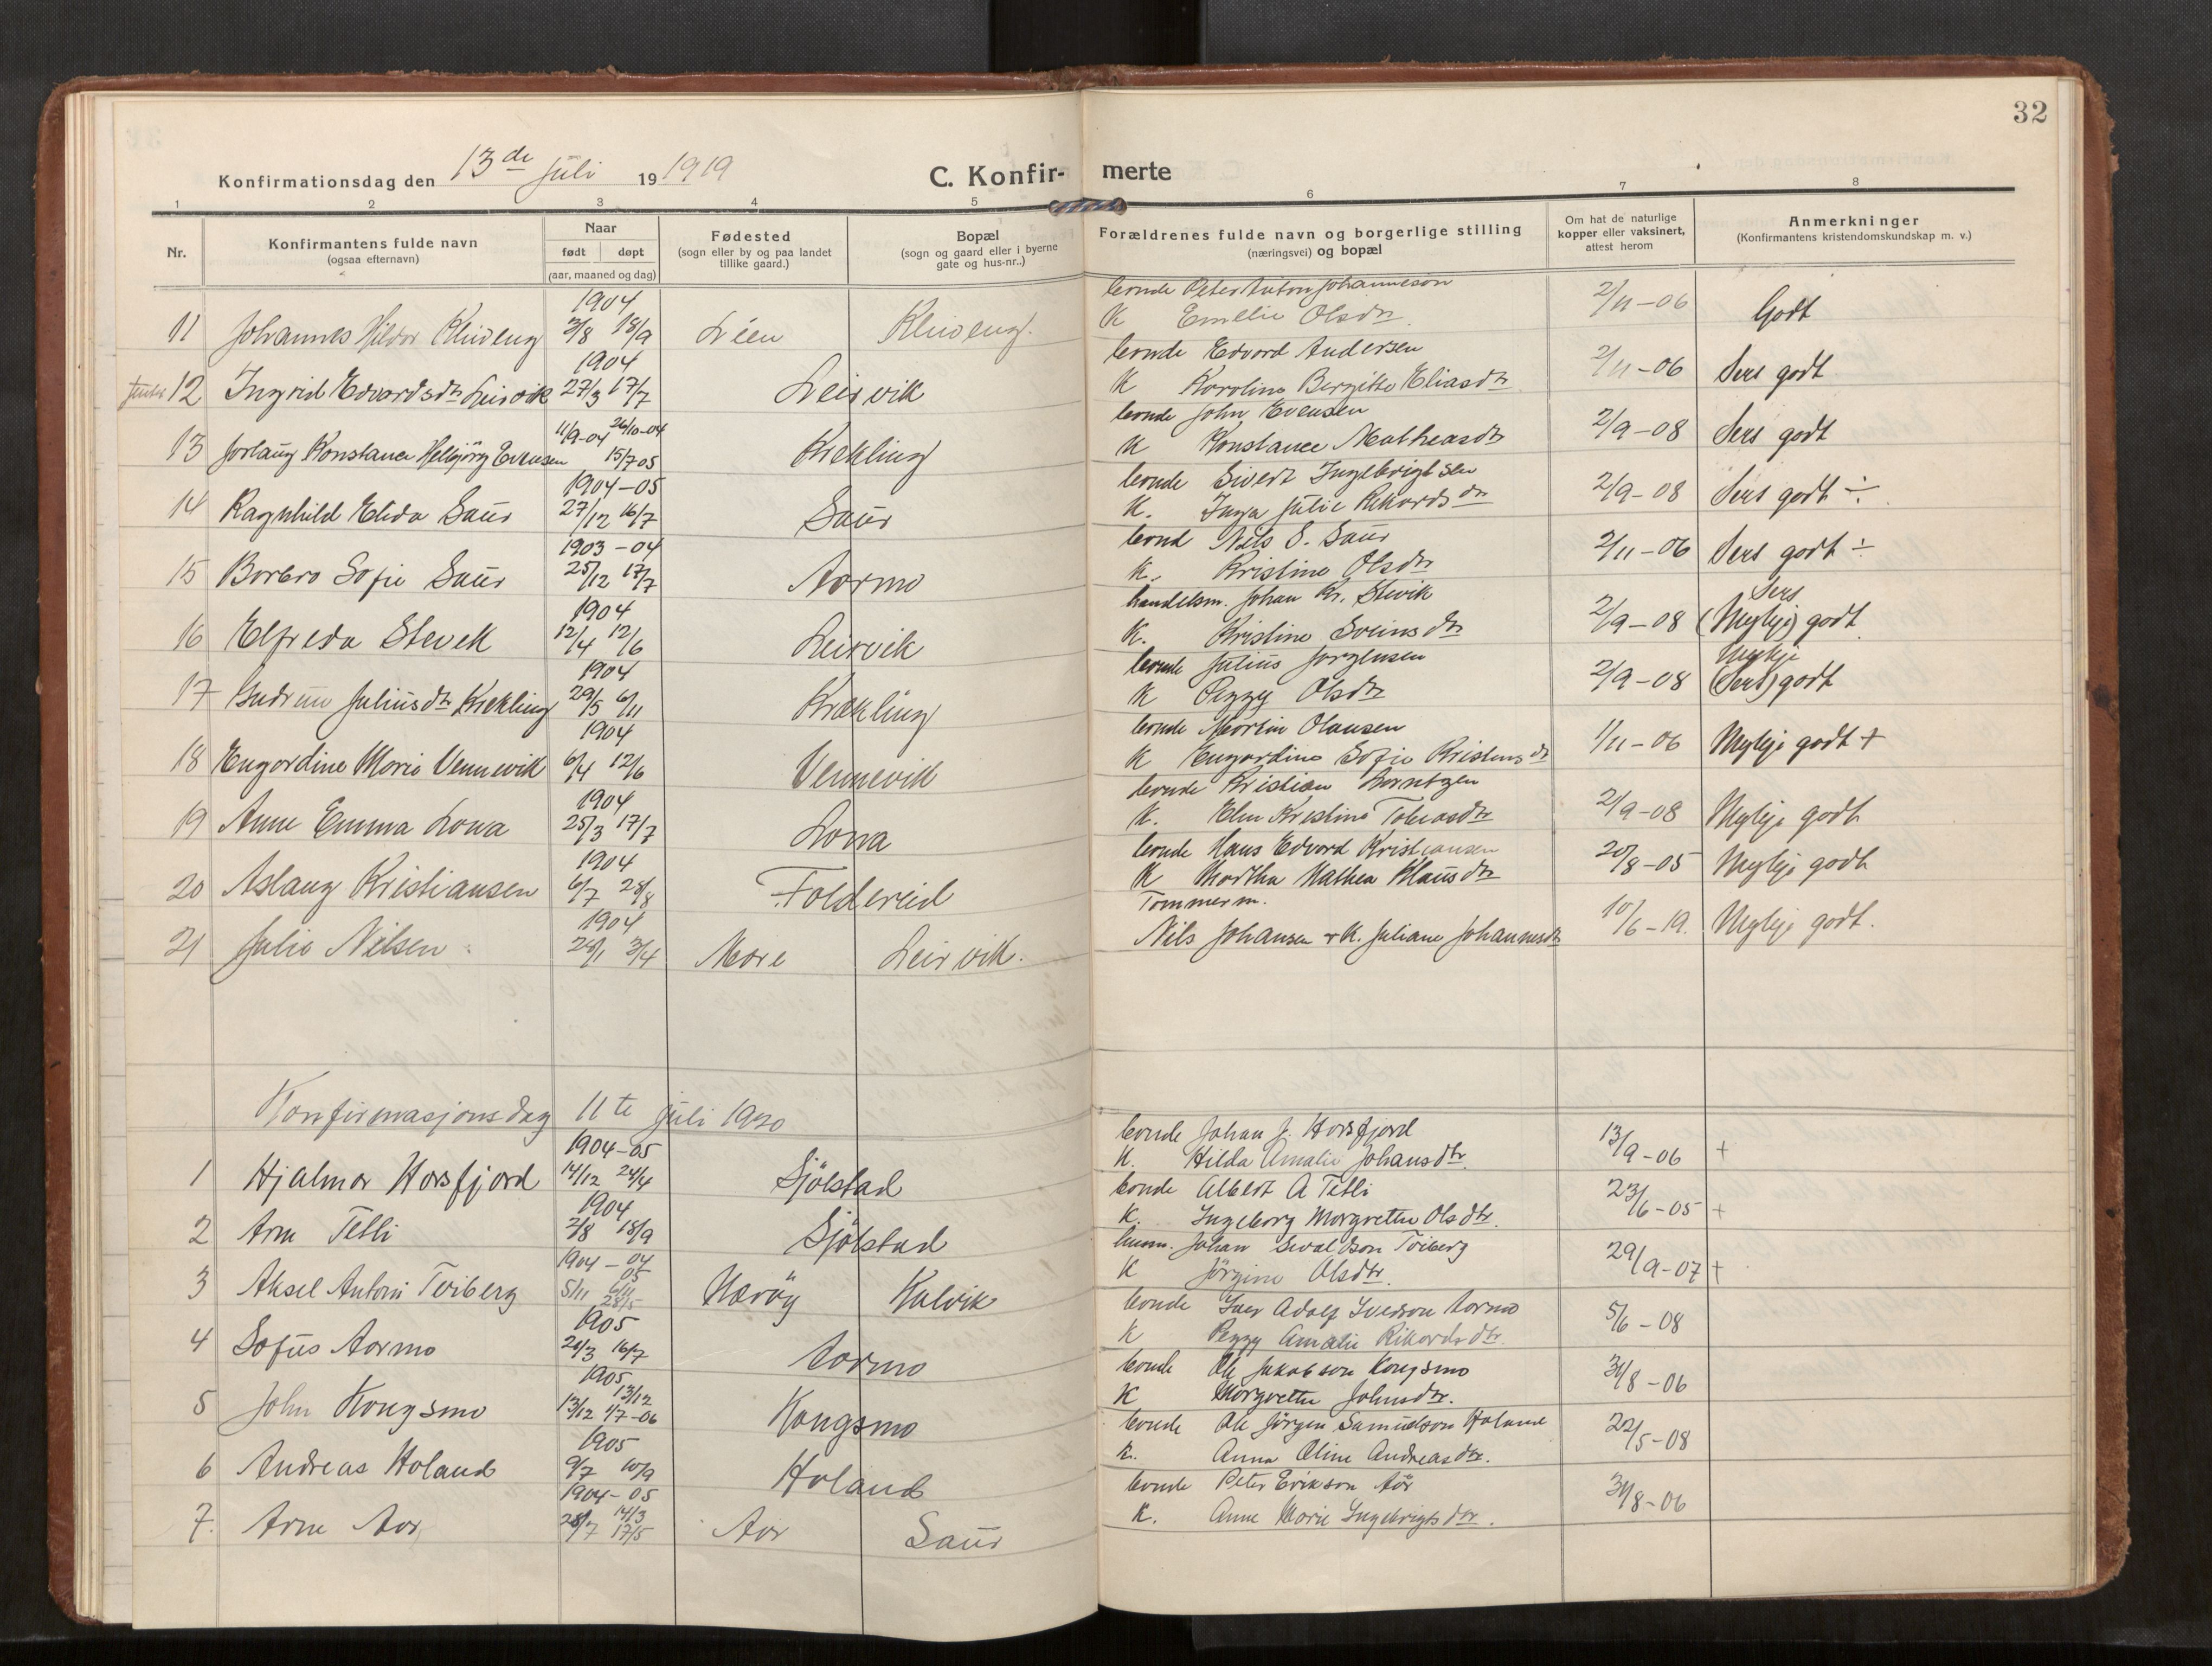 32
Konfirmationsdag den 13de Juli 19 1919
C. Konfir- merte
1 2 3 4 5 6 7 8
Nr.
Konfirmantens fulde navn
(ogsaa efternavn)
Naar
født døpt
(aar, maaned og dag)
Fødested
(sogn eller by og paa landet
tillike gaard.)
Bopæl
(sogn og gaard eller i byerne
gate og hus-nr..)
Forældrenes fulde navn og borgerlige stilling
(næringsvei) og bopæl
Om hat de naturlige
kopper eller vaksinert,
attest herom
Anmerkninger
(Konfirmantens kristendomskundskap m. v.)
1904 bonde Peter Anton Johanneson
11 Johannes Hildor Kliveng 3/8 18/9 Léen Kliveng. K Emelie Olsdtr. 2/11-06 Godt
1904 bonde Edvard Andersen
12 Ingrid Edvardsdtr Leirvik 27/3 17/7 Leirvik K Karoline Bergitte Eliasdtr 2/11-06 Sers godt
11/9-04 26/10-04 bonde John Evensen
13 Jorlaug Konstance Helbjörg Evensen 15/7 05 Krekling K Konstance Matheasdtr 2/9-08 Sers godt
1904-05 bonde Sivert Ingebrigtsen
14 Ragnhild Elida Saur 27/12 16/7 Saur K. Inga Julie Rikardsdtr 2/9-08 Sers godt ÷
1903-04 bond Nils S. Saur
15 Borbro Sofie Saur 25/12 17/7 Aormo K. Kristine Olsdtr 2/11-06 Sers godt ÷
1904 handelsm. Johan Kr. Stevik Sers
16 Elfreda Stevik 12/4 12/6 Leirvik K. Kristine Sveinsdtr 2/9-08 (Mykje) godt
1904 bonde Julius Jørgensen Mykje
17 Gudrun Juliusdtr Krekling 29/5 6/11 Krækling K Peggy Olsdtr 2/9-08 (Sers) godt
1904 bonde Martin Olausen
18 Engardine Marie Vennevik 6/4 12/6 Vennevik K Engardine Sofie Kristensdtr 1/11-06 Mykje godt +
1904 bonde Kristian Berntzen
19 Anne Emma Lona 25/3 17/7 Lona K. Elen Kristine Tobiasdtr 2/9-08 Mykje godt
1904 bonde Hans Edvard Kristiansen
20 Aslaug Kristiansen 6/7 28/8 Foldereid K Martha Mathea Klausdtr 20/8-05 Mykje godt
1904 Tømmerm.
21 Julie Nilsen 24/1 3/4 Mære Leirvik. Nils Johansen + K. Juliane Johannesdtr 10/6-19. Mykje godt.
Konfirmasjonsdag 11te juli 1920
1904-05 bonde Johan J. Horsfjord
1 Hjalmar Horsfjord 14/12 24/4 Sjölstad K. Hilda Amalie Johansdtr. 13/9-06 +
1904 bonde Albert A Tetli
2 Arne Tetli 2/8 18/9 Sjölstad K. Ingeborg Margrethe Olsdtr. 23/6-05 +
1904-04 05 husm. Johan Sivaldson Tviberg
3 Aksel Antoni Tviberg 5/11 6/11 28/5 Nærøy Kalvik K Jörgine Olsdtr. 29/9-07 +
1905 bonde Iver Adolf Iverson Aormo
4 Sofus Aormo 20/3 16/7 Aormo K Peggy Amalie Rikardsdtr. 5/6-08
1905 bonde Ole Jakobson Kongsmo
13/12
5 John Kongsmo 13/12 1/7-06 Kongsmo K Margrethe Johnsdtr. 31/8-06
1905 bonde Ole Jörgen Samuelson Holand
6 Andreas Holand 9/7 10/9 Holand K. Anna Oline Andreasdtr. 22/5-08
1904-05 bonde Peter Erikson Aör
14/3
7. Arne Aor 28/7 17/5 Aor Saur K. Anne Marie Ingebrigtsdtr. 31/8-06